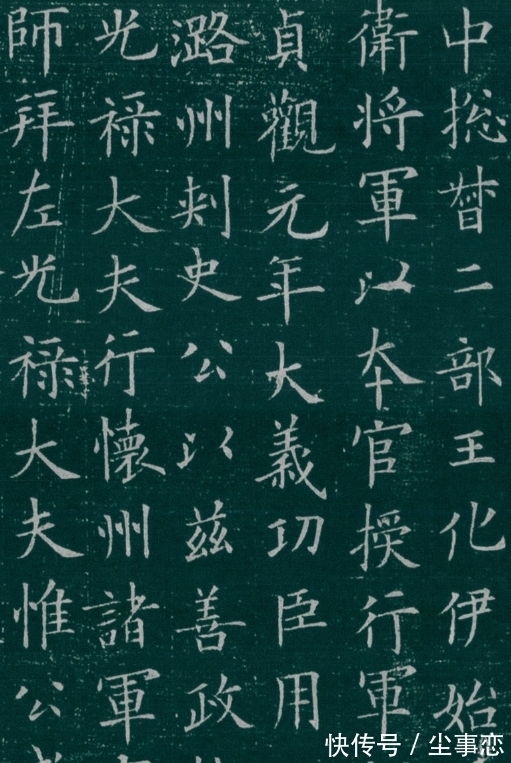 中揔督二部王化伊始
衛将軍以夲官授行軍
貞觀元年大義功臣用
潞州刺史公以兹善政
光禄大夫行懷州諸軍
師拜左光禄大夫惟公
快传号 / 尘事恋